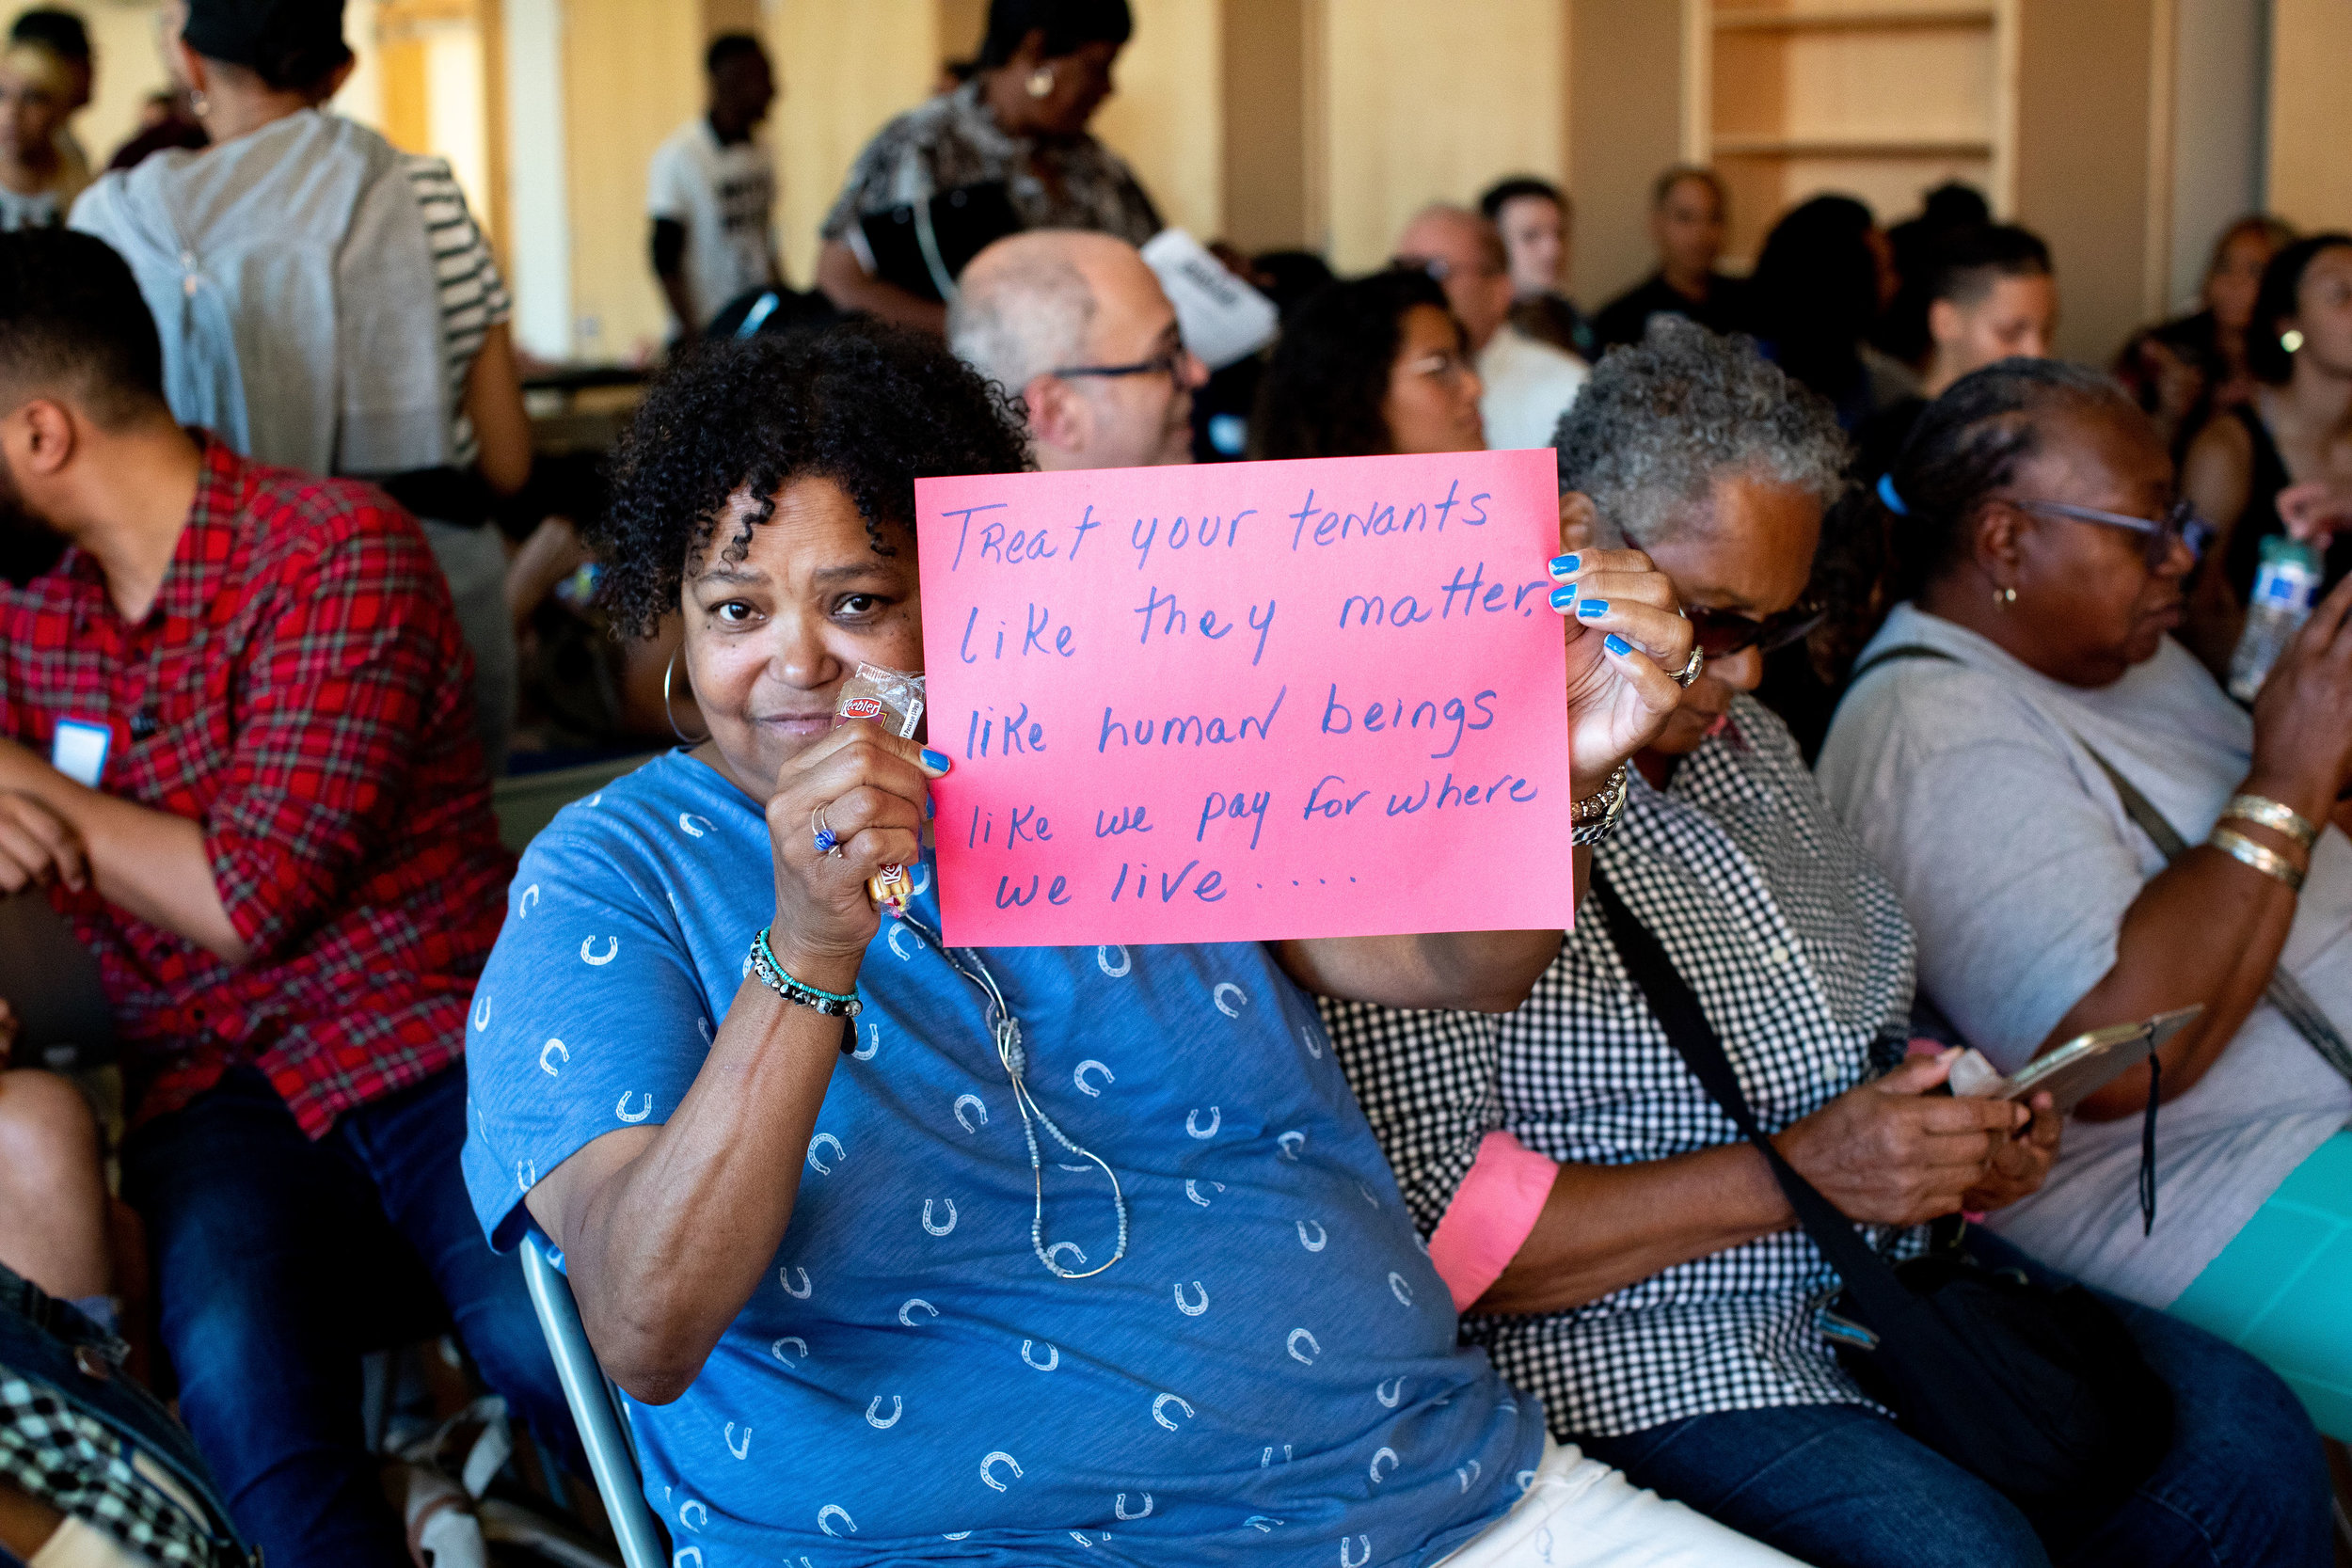 Treat your tenants
like they matter.
like human beings
like we pay for where
we live.....
Keebler